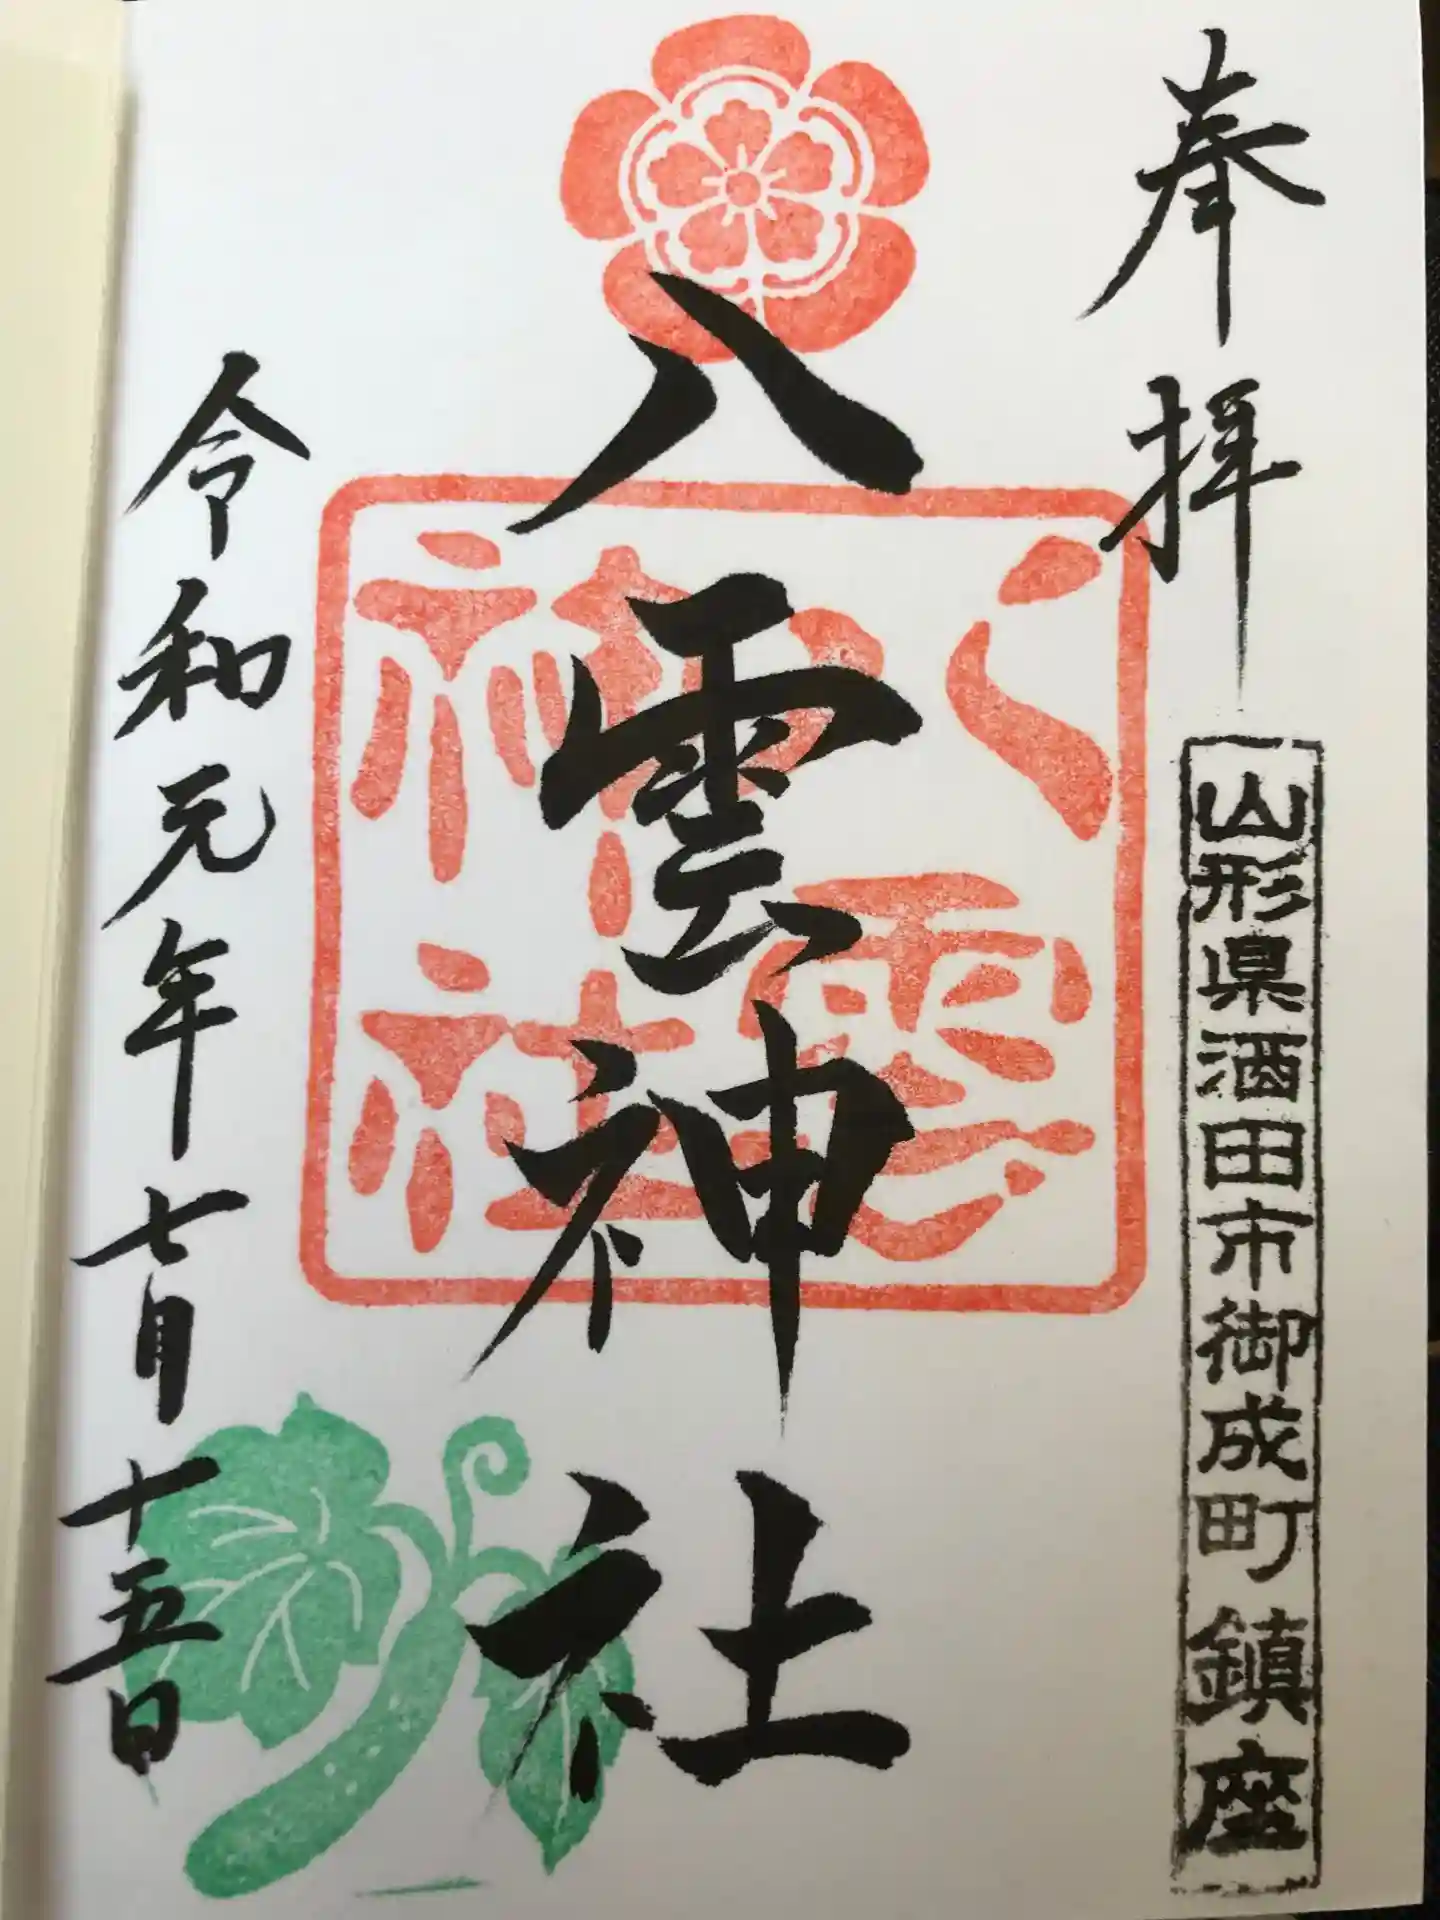 奉拝
山形県酒田市御成町鎮座
八雲神社
八雲神社
令和元年七月十五日